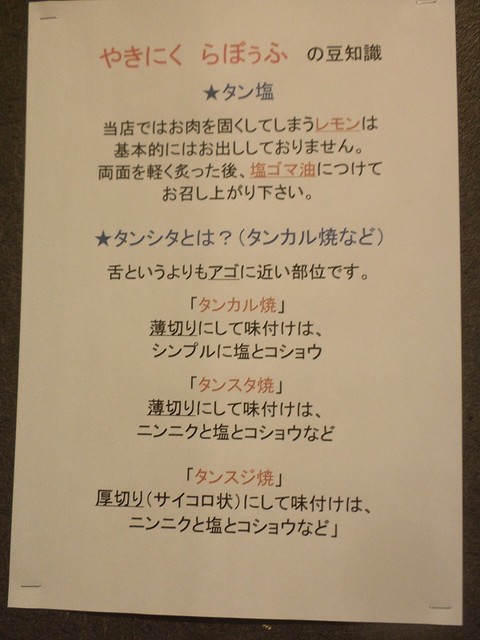 やきにく らぼぅふ の豆知識
★タン塩
当店ではお肉を固くしてしまうレモンは
基本的にはお出ししておりません。
両面を軽く炙った後、塩ゴマ油につけて
お召し上がり下さい。
★タンシタとは？（タンカル焼など）
舌というよりもアゴに近い部位です。
「タンカル焼」
薄切りにして味付けは、
シンプルに塩とコショウ
「タンスタ焼」
薄切りにして味付けは、
ニンニクと塩とコショウなど
「タンスジ焼」
厚切り（サイコロ状）にして味付けは、
ニンニクと塩とコショウなど」